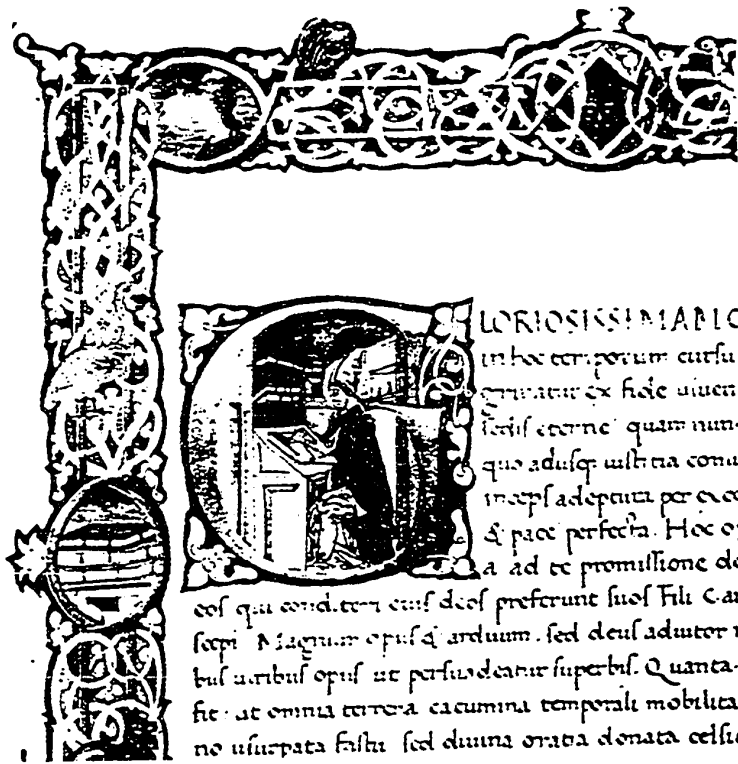 GLORIOSISSIMAM C
in hoc temporum cursu
grinatur ex fide uiuen
sedis eterne quam nun
quo adusq; iustitia conu
inceps adeptura per exce
& pace perfecta. Hoc op
a ad te promissione de
eos qui conditori eius deos preferunt suos Fili Car
scepi Magnum opus & arduum. sed deus adiutor n
bus uiribus opus ut persuadeatur superbis. Quanta
fit. ut omnia terrena cacumina temporali mobilita
no usurpata fastu sed diuina gratia donata celsi